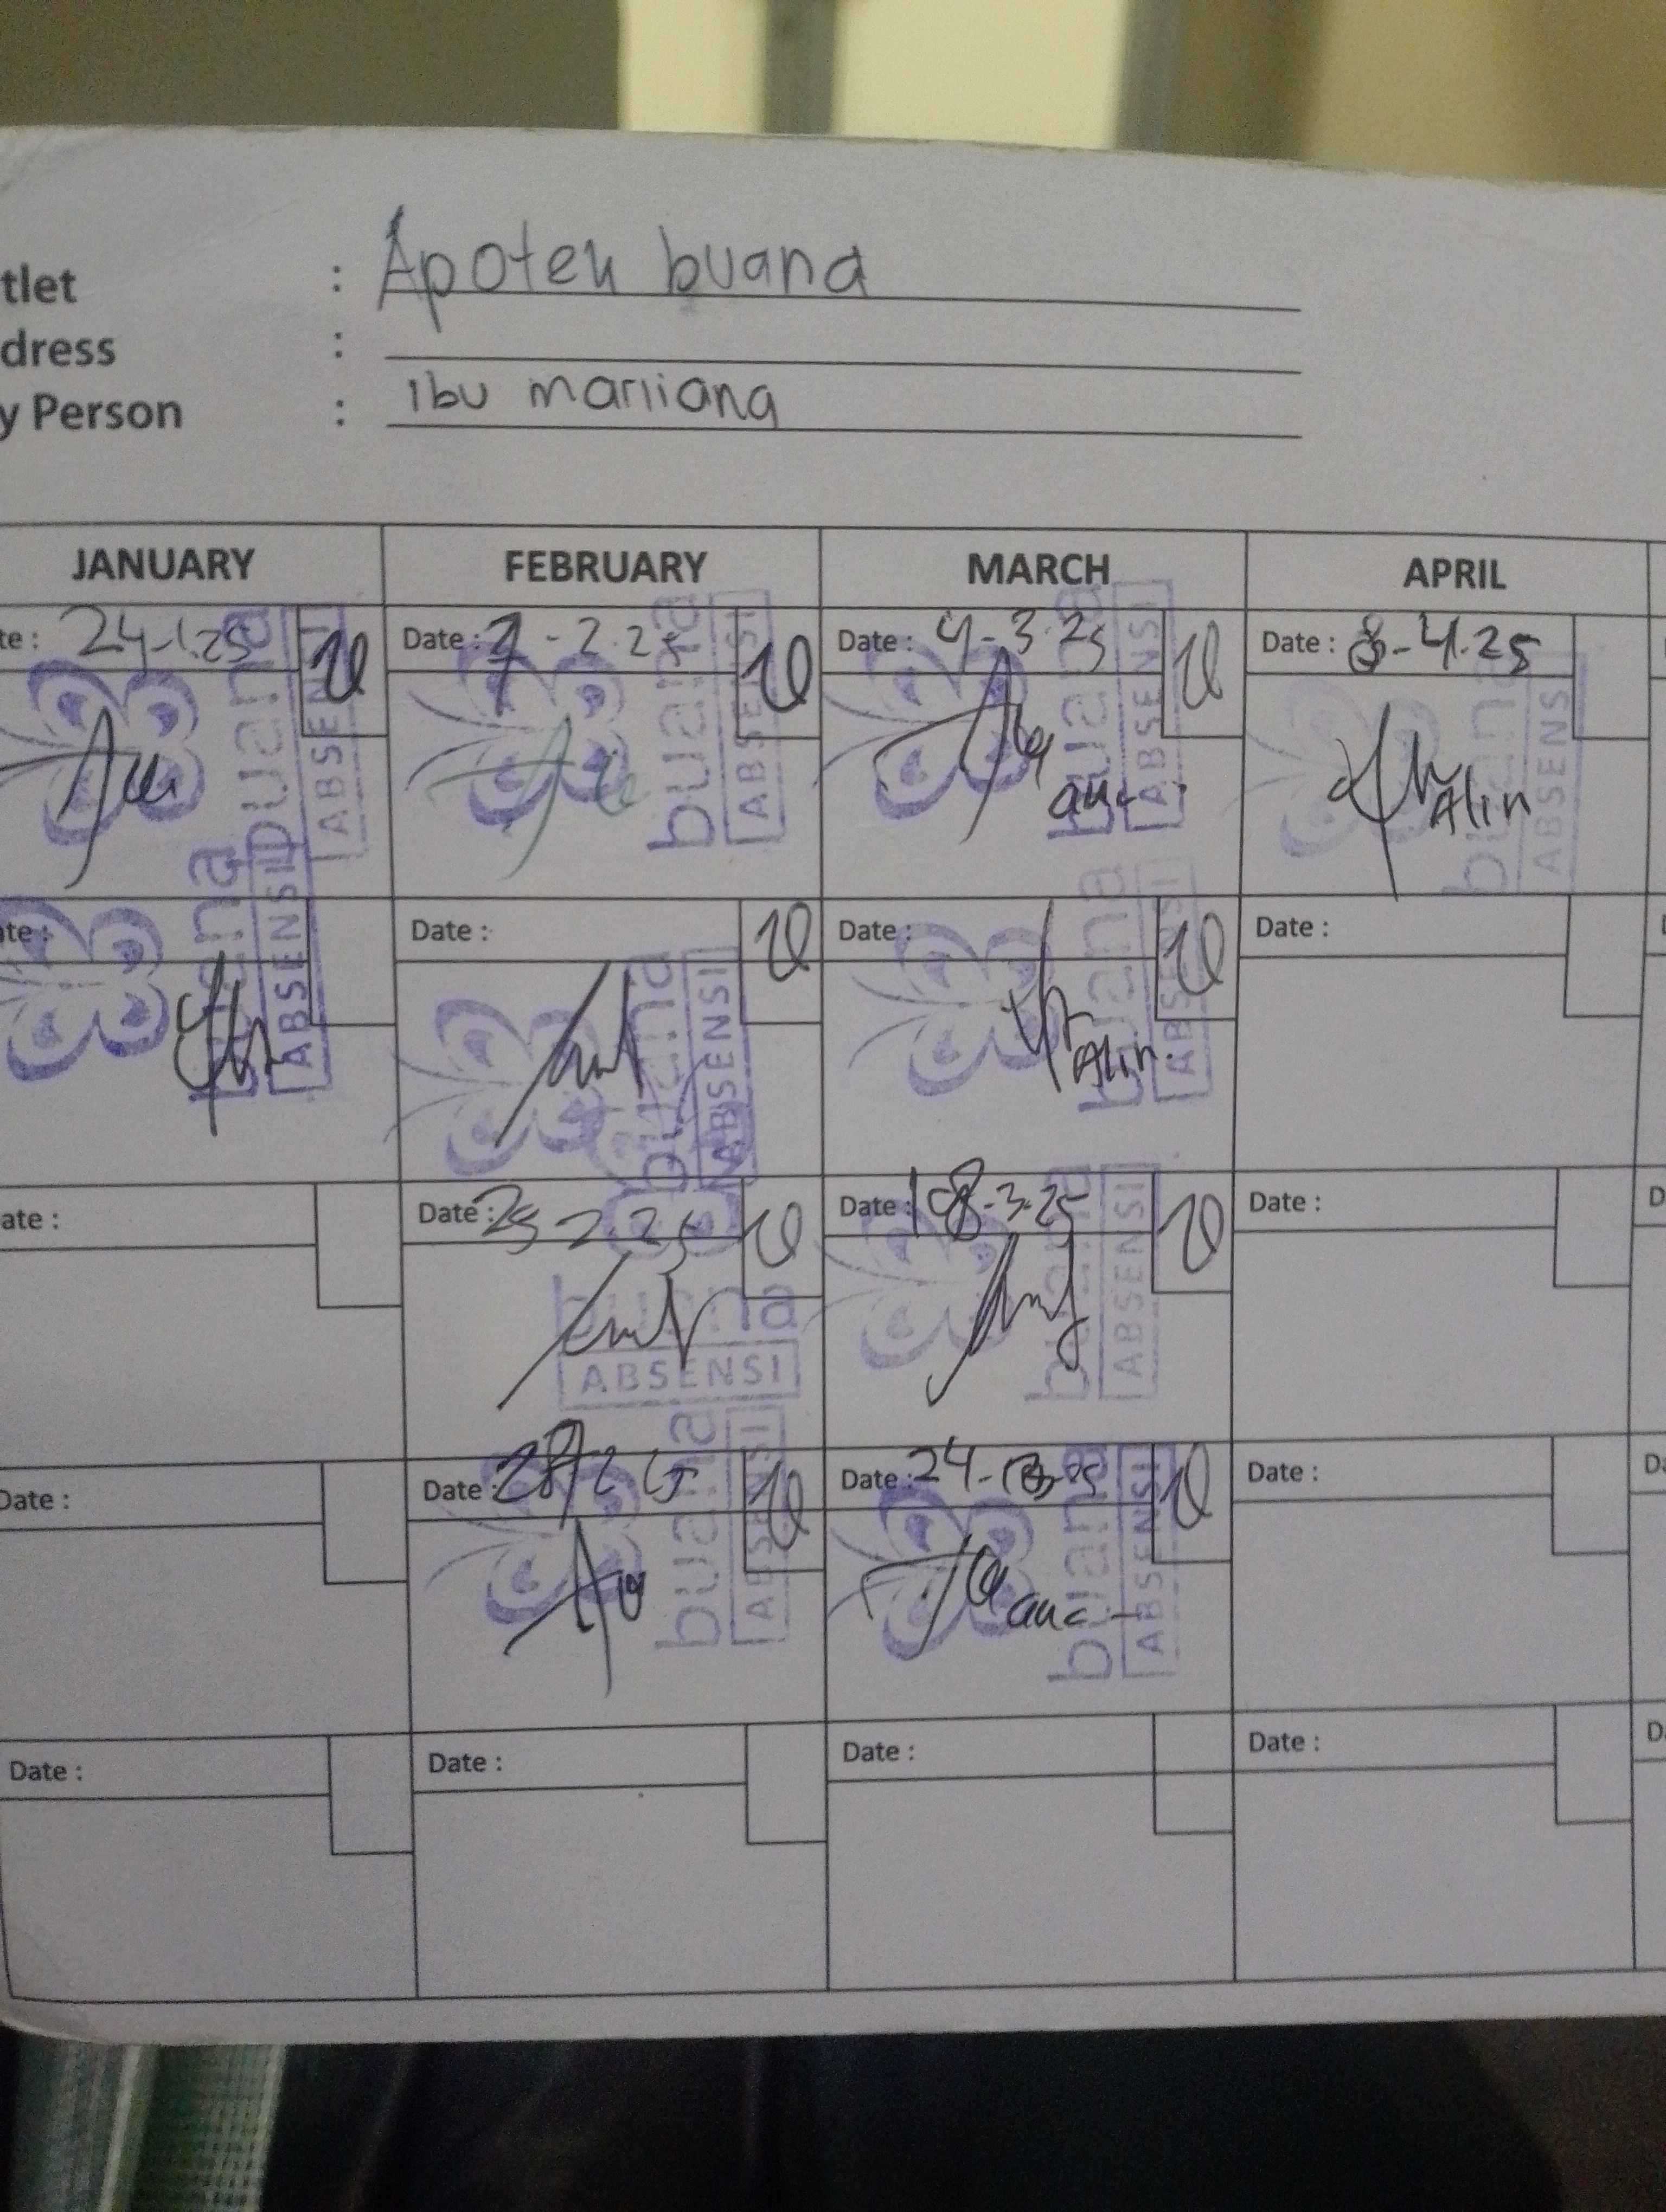 tlet : Apotek buana
dress :
y Person : Ibu marliana
JANUARY FEBRUARY MARCH APRIL
te: 24-1.25 Date: 7-2.25 Date: 4-3.25 Date: 8-4.25
buana ABSENSI buana ABSENSI buana ABSENSI buana ABSENSI
Alin
ate: Date: Date: Date:
buana ABSENSI buana ABSENSI buana ABSENSI
Alin
ate: Date: 25 2 25 Date: 18-3-25 Date: D
buana ABSENSI buana ABSENSI
Date: Date: 28/2 25 Date: 24-03-25 Date: Da
buana ABSENSI buana ABSENSI
Date: Date: Date: Date: D